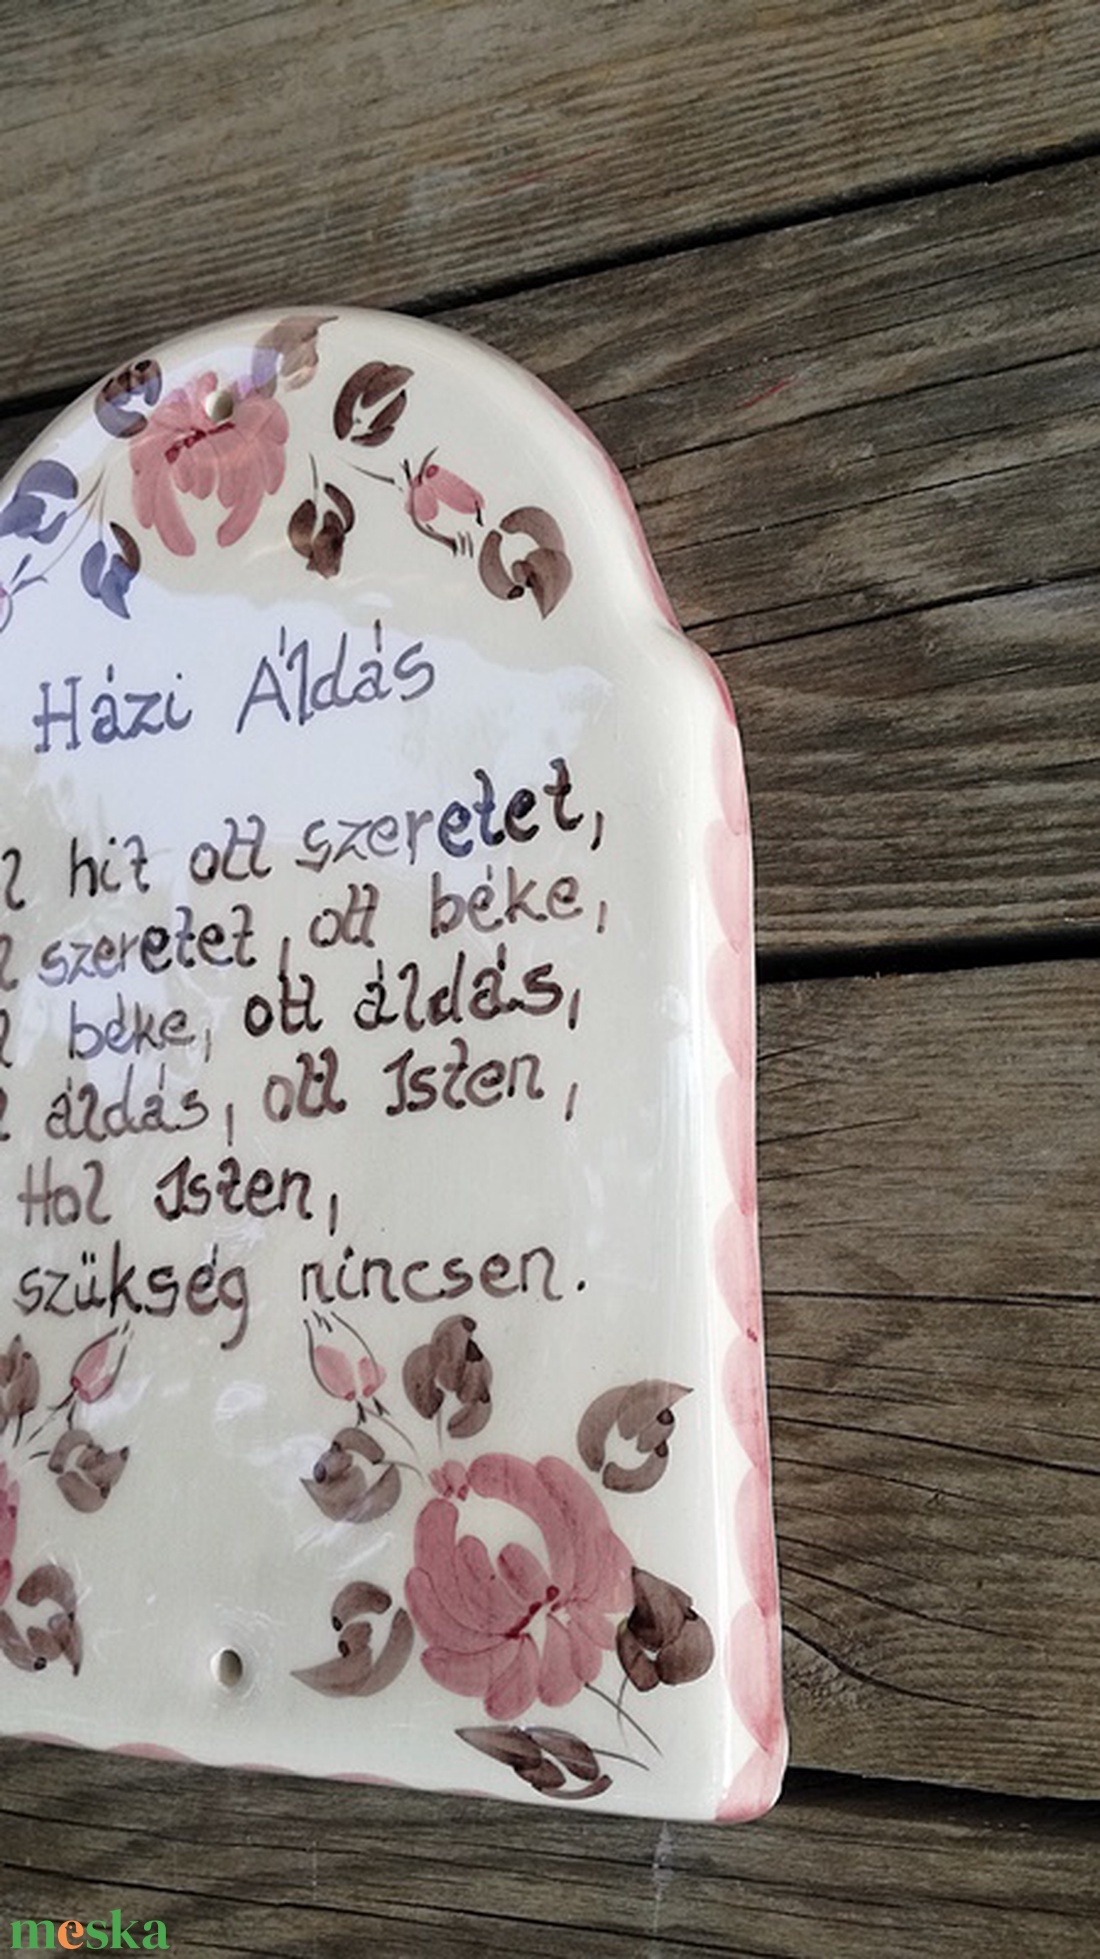 Házi Áldás
l hit ott szeretet,
l szeretet, ott béke,
l béke, ott áldás,
l áldás, ott Isten,
Hol Isten,
szükség nincsen.
meska